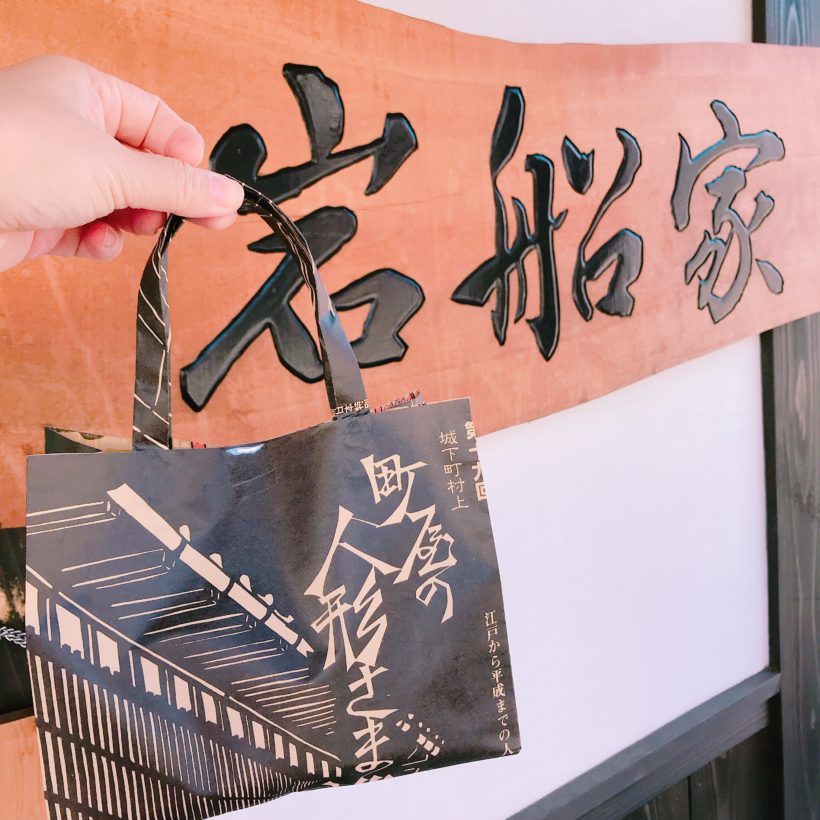 岩船家
第十九回
城下町村上
町屋の
人形さま
江戸から平成までの人